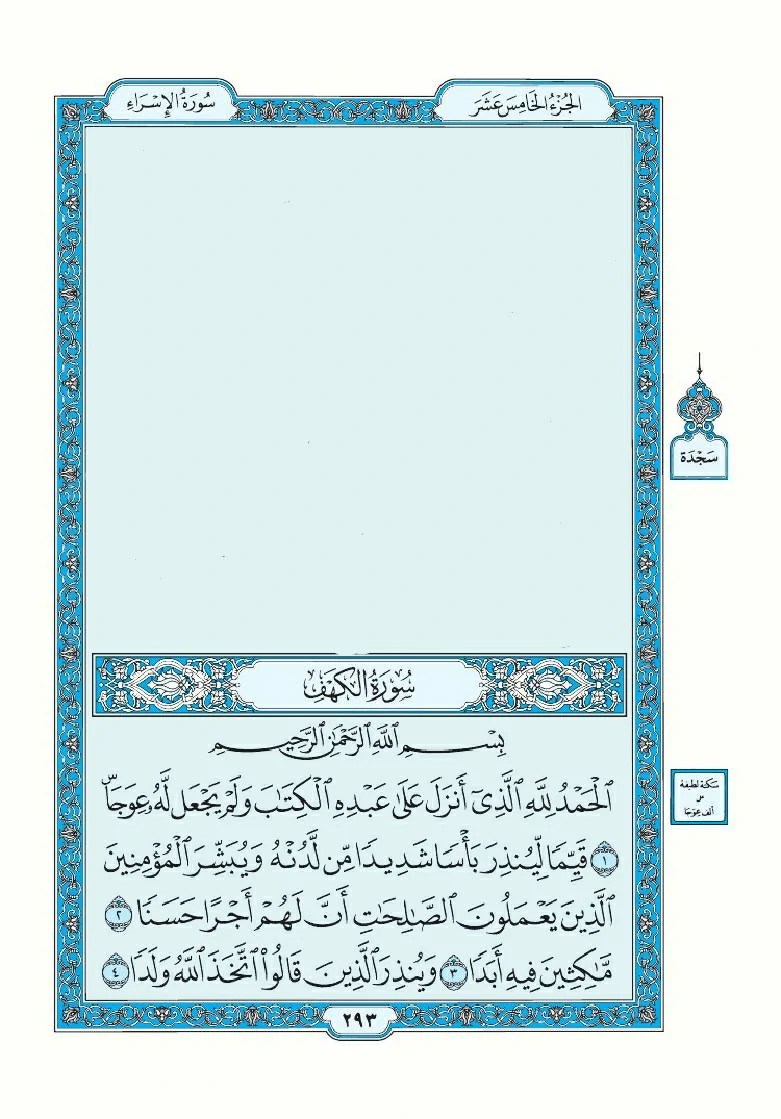 الجُزْءُ الخَامِسَ عَشَرَ
سُورَةُ الإِسْرَاءِ
سَجْدَة
سُورَةُ الكَهْفِ
بِسْمِ ٱللَّهِ ٱلرَّحْمَٰنِ ٱلرَّحِيمِ
ٱلْحَمْدُ لِلَّهِ ٱلَّذِىٓ أَنزَلَ عَلَىٰ عَبْدِهِ ٱلْكِتَٰبَ وَلَمْ يَجْعَل لَّهُۥ عِوَجَاۜ
١ قَيِّمًا لِّيُنذِرَ بَأْسًا شَدِيدًا مِّن لَّدُنْهُ وَيُبَشِّرَ ٱلْمُؤْمِنِينَ
ٱلَّذِينَ يَعْمَلُونَ ٱلصَّٰلِحَٰتِ أَنَّ لَهُمْ أَجْرًا حَسَنًا ٢
مَّٰكِثِينَ فِيهِ أَبَدًا ٣ وَيُنذِرَ ٱلَّذِينَ قَالُوا۟ ٱتَّخَذَ ٱللَّهُ وَلَدًا ٤
سكتة لطيفة
على
ألف عِوَجَا
٢٩٣